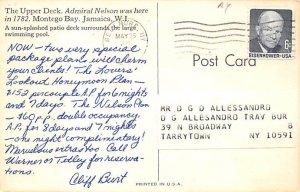 The Upper Deck. Admiral Nelson was here
in 1782. Montego Bay, Jamaica, W.I.
A sun-splashed patio deck surrounds the large
swimming pool.
NOW - two very special
package plans will charm
your clients! The Lovers'
Lookout Honeymoon Plan -
per couple A.P. for 6 nights
and 7 days. The Nelson Plan
- 160 p.p. double occupancy
A.P. for 8 days and 7 nights
- the night complimentary!
Marvelous extras too. Call
Warner or Tilley for reserva-
tions.
Cliff Burt
EISENHOWER·USA
6c
Post Card
MR D G D ALLESSANDRO
D G ALLESSANDRO TRAV BUR
39 N BROADWAY B
TARRYTOWN NY 10591
PRINTED IN U.S.A.